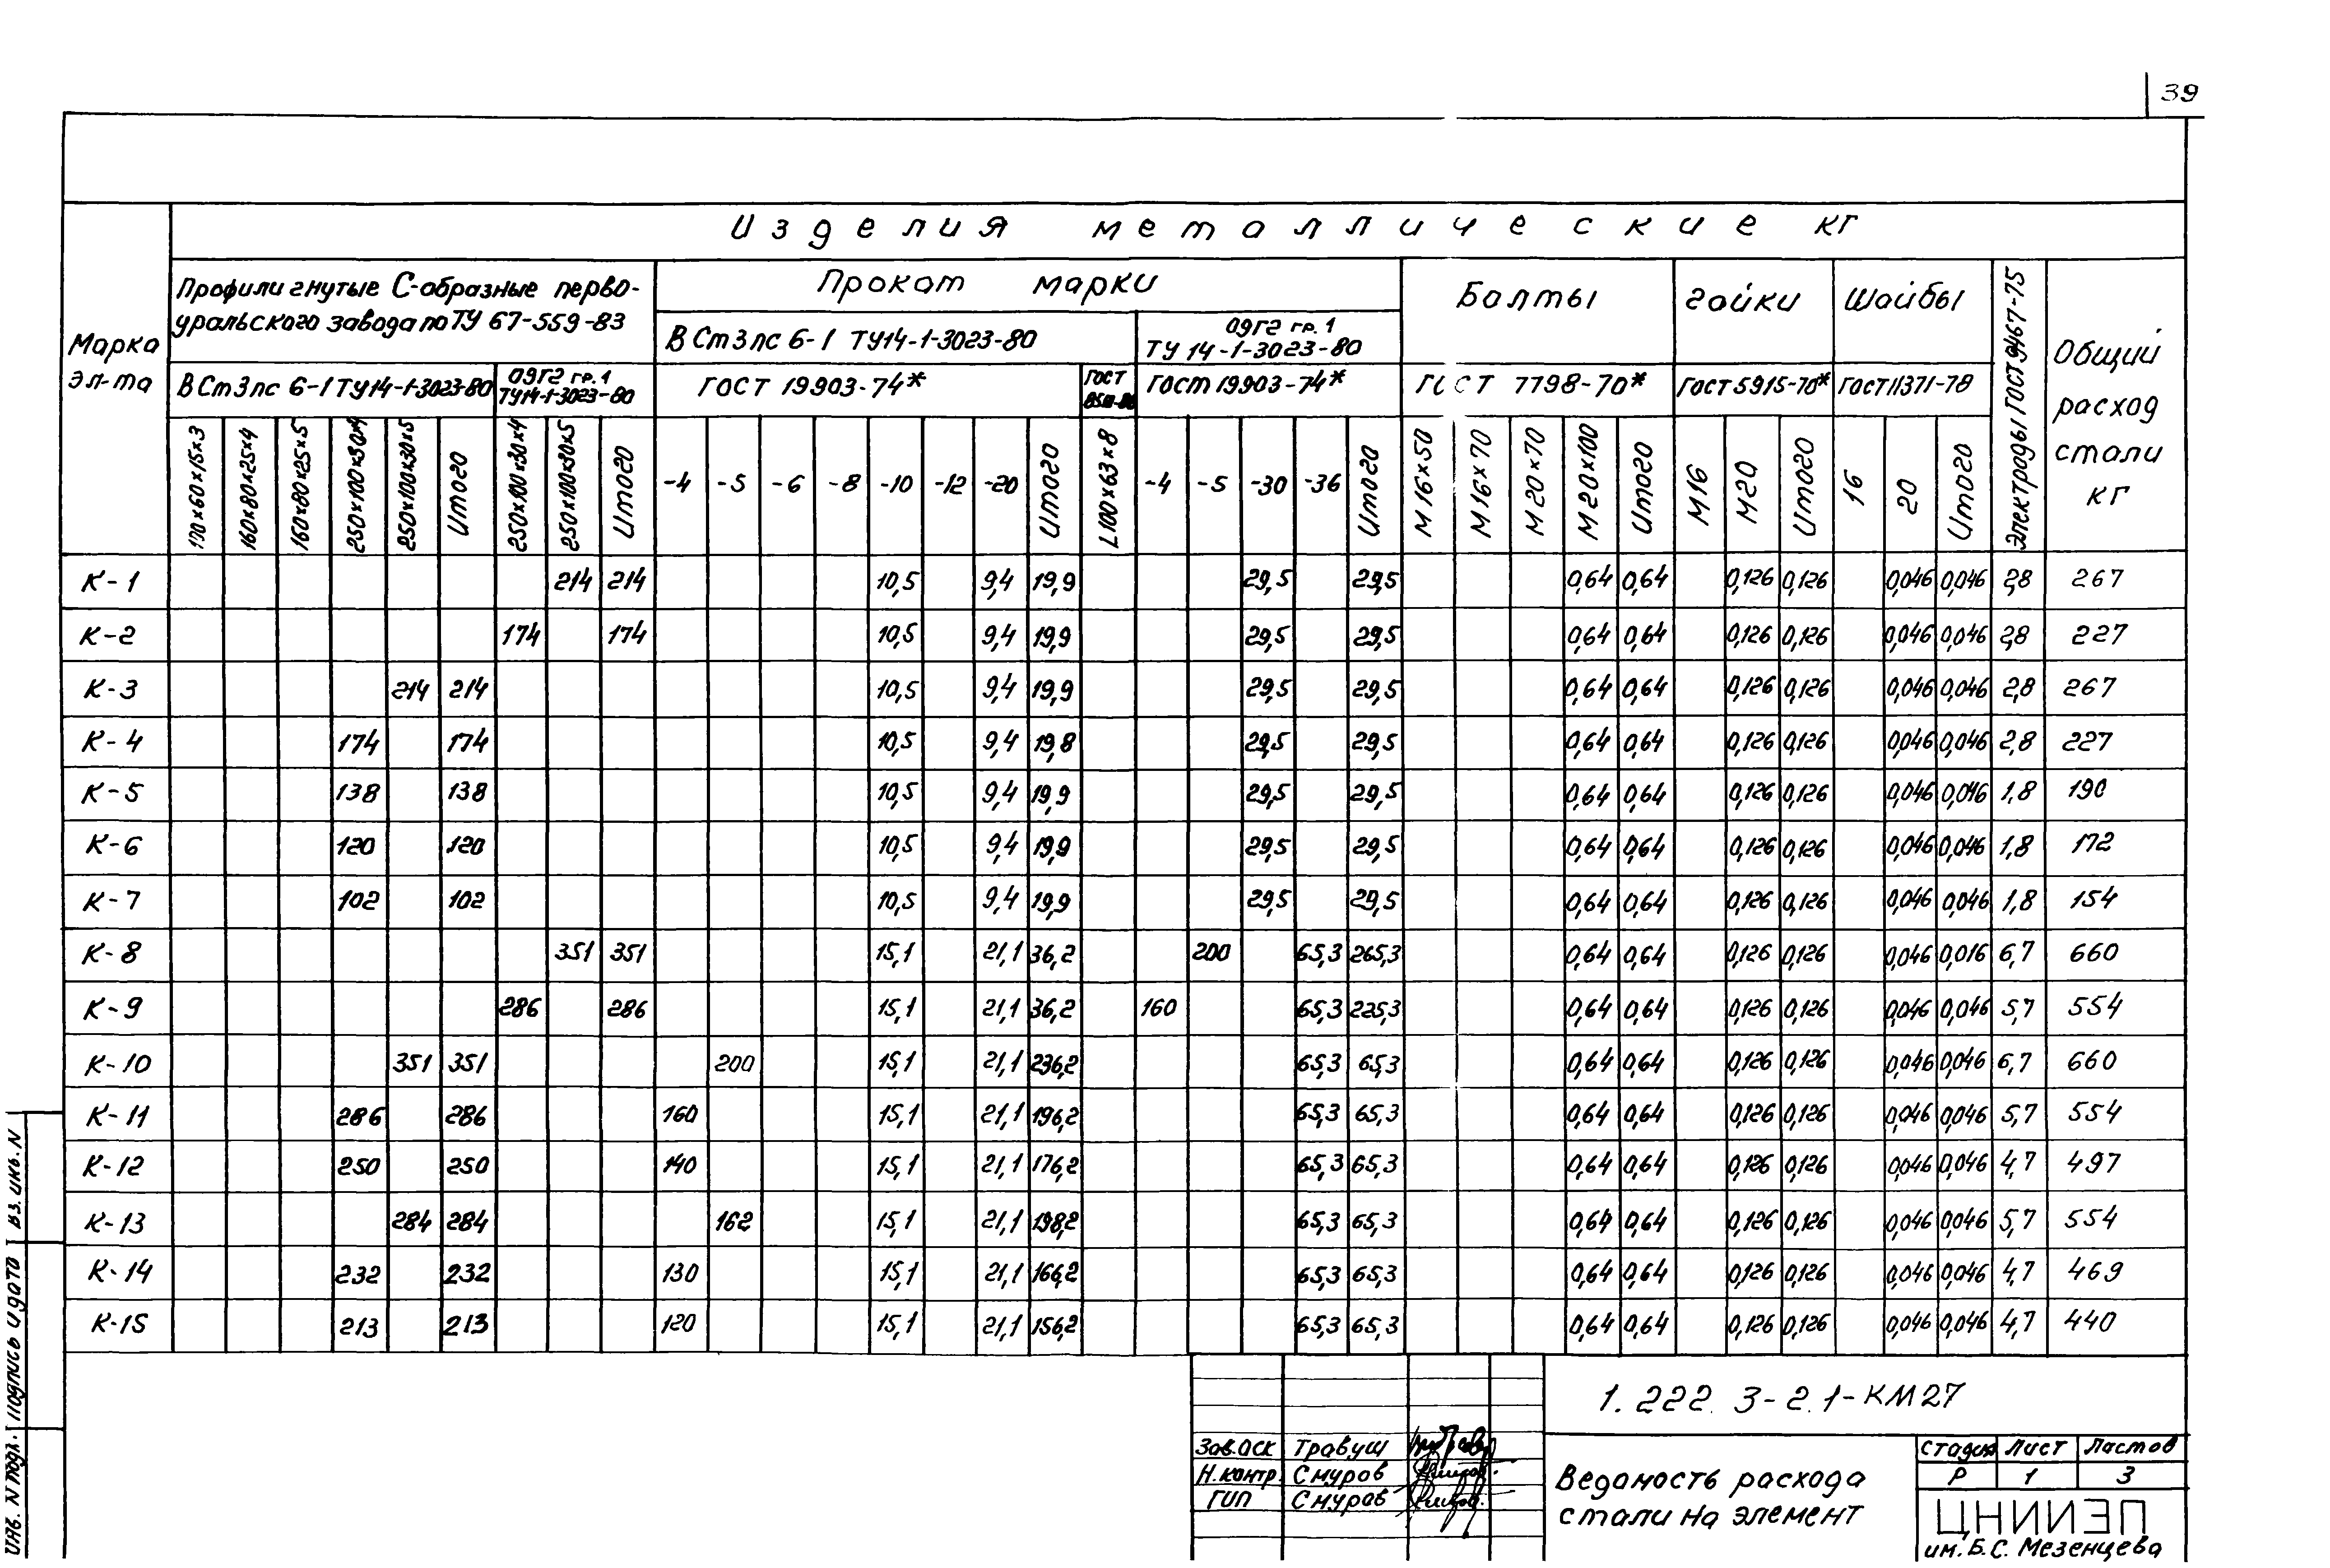 39
Изделия металлические кг
Марка эл-та
Профили гнутые С-образные перво-
уральского завода по ТУ 67-559-83
Прокат марки
Болты
Гайки
Шайбы
Электроды ГОСТ 9467-75
Общий расход стали кг
ВСт3пс 6-1 ТУ14-1-3023-80
09Г2 гр.1
ТУ 14-1-3023-80
ВСт3пс 6-1 ТУ14-1-3023-80
09Г2 гр.1
ТУ14-1-3023-80
ГОСТ 19903-74*
ГОСТ
ГОСТ 19903-74*
ГОСТ 7798-70*
ГОСТ 5915-70*
ГОСТ 11371-78
160×80×25×4 160×80×25×5 250×100×30×4 250×100×30×5 Итого 250×100×30×4 250×100×30×5 Итого -4 -5 -6 -8 -10 -12 -20 Итого L100×63×8 -4 -5 -30 -36 Итого М16×50 М16×70 М20×70 М20×100 Итого М16 М20 Итого 16 20 Итого
К-1 214 214 10,5 9,4 19,9 29,5 29,5 0,64 0,64 0,126 0,126 0,046 0,046 2,8 267
К-2 174 174 10,5 9,4 19,9 29,5 29,5 0,64 0,64 0,126 0,126 0,046 0,046 2,8 227
К-3 214 214 10,5 9,4 19,9 29,5 29,5 0,64 0,64 0,126 0,126 0,046 0,046 2,8 267
К-4 174 174 10,5 9,4 19,8 29,5 29,5 0,64 0,64 0,126 0,126 0,046 0,046 2,8 227
К-5 138 138 10,5 9,4 19,9 29,5 29,5 0,64 0,64 0,126 0,126 0,046 0,046 1,8 190
К-6 120 120 10,5 9,4 19,9 29,5 29,5 0,64 0,64 0,126 0,126 0,046 0,046 1,8 172
К-7 102 102 10,5 9,4 19,9 29,5 29,5 0,64 0,64 0,126 0,126 0,046 0,046 1,8 154
К-8 351 351 15,1 21,1 36,2 200 65,3 265,3 0,64 0,64 0,126 0,126 0,046 0,016 6,7 660
К-9 286 286 15,1 21,1 36,2 160 65,3 225,3 0,64 0,64 0,126 0,126 0,046 0,046 5,7 554
К-10 351 351 200 15,1 21,1 236,2 65,3 65,3 0,64 0,64 0,126 0,126 0,046 0,046 6,7 660
К-11 286 286 160 15,1 21,1 196,2 65,3 65,3 0,64 0,64 0,126 0,126 0,046 0,046 5,7 554
К-12 250 250 140 15,1 21,1 176,2 65,3 65,3 0,64 0,64 0,126 0,126 0,046 0,046 4,7 497
К-13 284 284 162 15,1 21,1 198,2 65,3 65,3 0,64 0,64 0,126 0,126 0,046 0,046 5,7 554
К-14 232 232 130 15,1 21,1 166,2 65,3 65,3 0,64 0,64 0,126 0,126 0,046 0,046 4,7 469
К-15 213 213 120 15,1 21,1 156,2 65,3 65,3 0,64 0,64 0,126 0,126 0,046 0,046 4,7 440
1.222.3-2.1-КМ27
Зав.ОСК Травуш
Н.контр. Смуров
ГИП Смуров
Ведомость расхода
стали на элемент
Стадия Лист Листов
Р 1 3
ЦНИИЭП
им. Б.С. Мезенцева
Инв. N подл. Подпись и дата Вз. инв. N